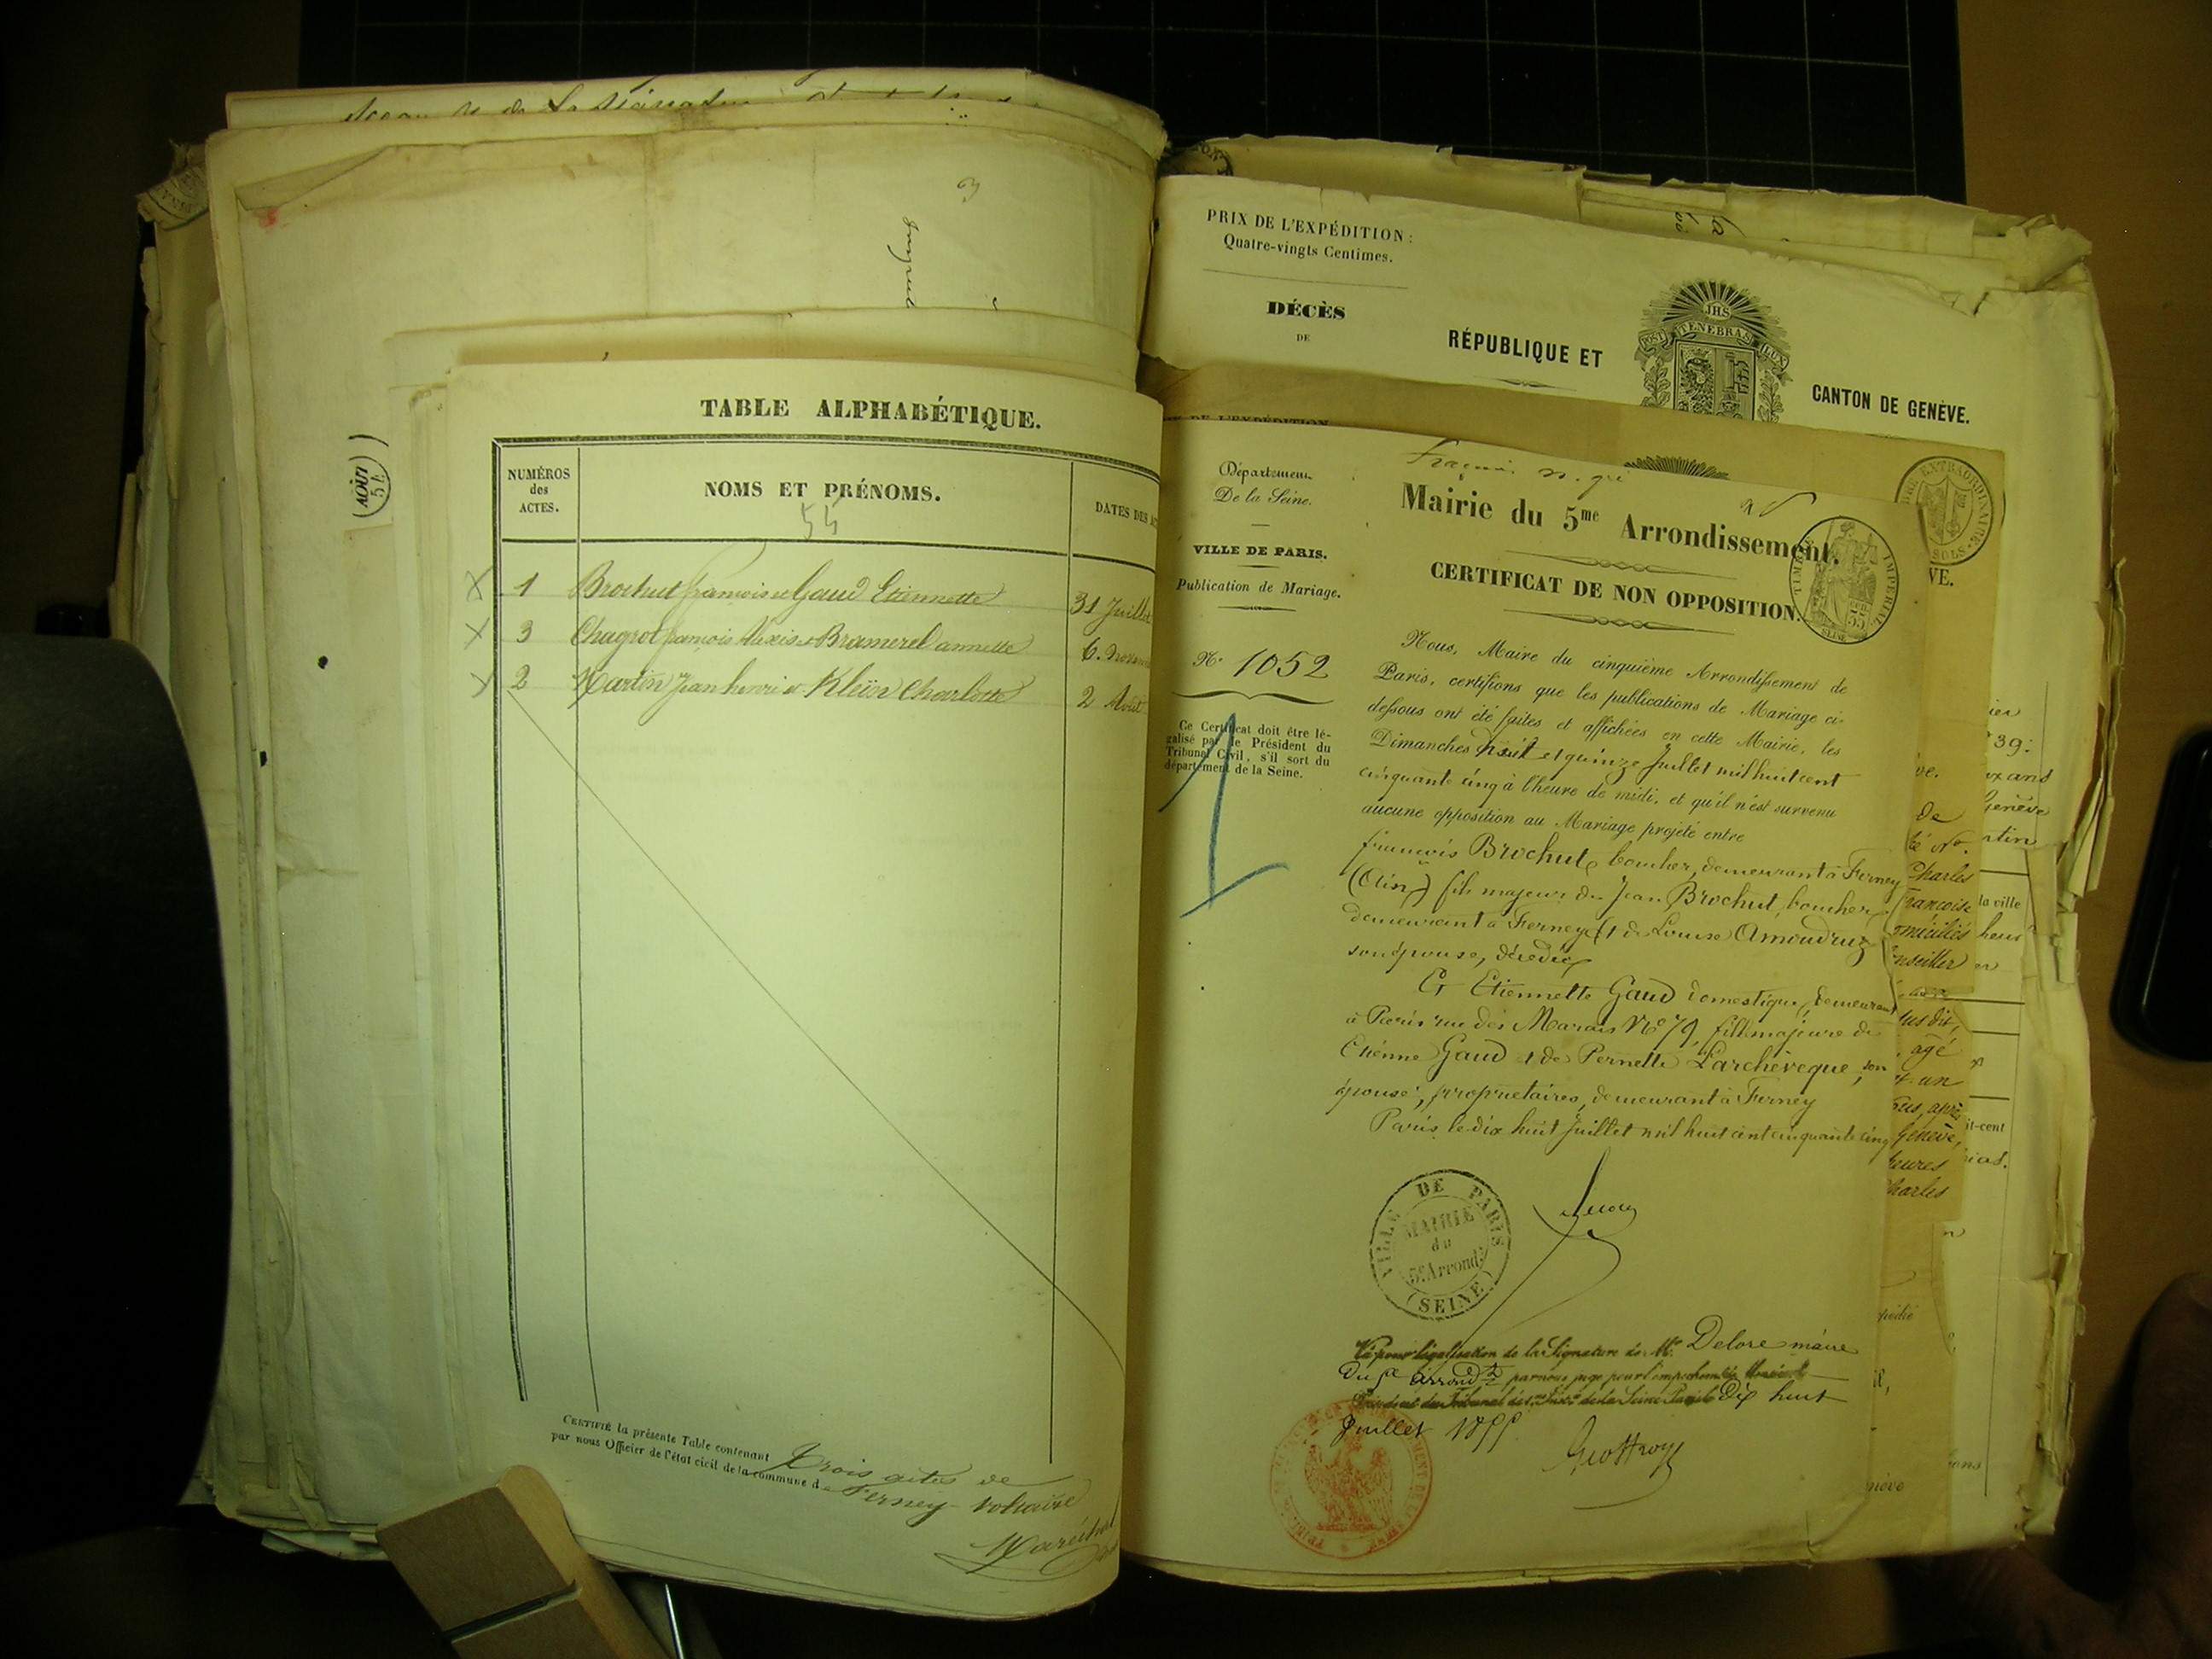 TABLE ALPHABÉTIQUE.
NUMÉROS
des
ACTES.
NOMS ET PRÉNOMS.
54
DATES DES
1 Brochut françois et Gaud Etiennette 31 Juillet
3 Chagrot françois Alexis et Bramerel annette 6.
2 Martin Jean henri et Kleïn Charlotte 2 Août
CERTIFIÉ la présente Table contenant trois actes
par nous Officier de l'état civil de la commune de Ferney-Voltaire
Maréchal
AOÛT
54
PRIX DE L'EXPÉDITION :
Quatre-vingts Centimes.
DÉCÈS
DE
RÉPUBLIQUE ET
CANTON DE GENÈVE.
JHS
POST TENEBRAS LUX
Département
De la Seine.
VILLE DE PARIS.
Publication de Mariage.
N° 1052
Ce Certificat doit être lé-
galisé par le Président du
Tribunal Civil, s'il sort du
département de la Seine.
Mairie du 5me Arrondissement.
CERTIFICAT DE NON OPPOSITION.
TIMBRE IMPERIAL
SEINE
Nous, Maire du cinquième Arrondissement de
Paris, certifions que les publications de Mariage ci-
dessous ont été faites et affichées en cette Mairie, les
Dimanches huit et quinze Juillet mil huit cent
cinquante cinq à l'heure de midi, et qu'il n'est survenu
aucune opposition au Mariage projeté entre
françois Brochut, boucher, demeurant à Ferney
(Ain) fils majeur de Jean Brochut, boucher,
demeurant à Ferney et de Louise Amoudruz
son épouse, décédée
Et Etiennette Gaud domestique, demeurant
à Paris rue des Marais N° 79, fille majeure de
Etienne Gaud et de Pernette Larchevêque, son
épouse, propriétaires, demeurant à Ferney
Paris, le dix huit Juillet mil huit cent cinquante cinq
VILLE DE PARIS
MAIRIE
du
5e Arrond.
(SEINE)
Vu pour légalisation de la Signature de Mr Delore maire
du 5e arrond. par nous juge pour l'empêchement de Monsieur le
Président du Tribunal de 1ère Inst. de la Seine Paris le Dix huit
Juillet 1855
Geoffroy